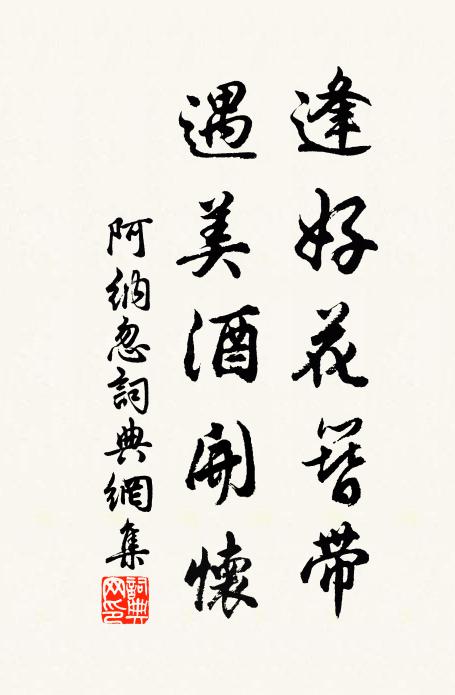 逢好花簪带
遇美酒開懷
阿納忽詞典網集
詞典网印